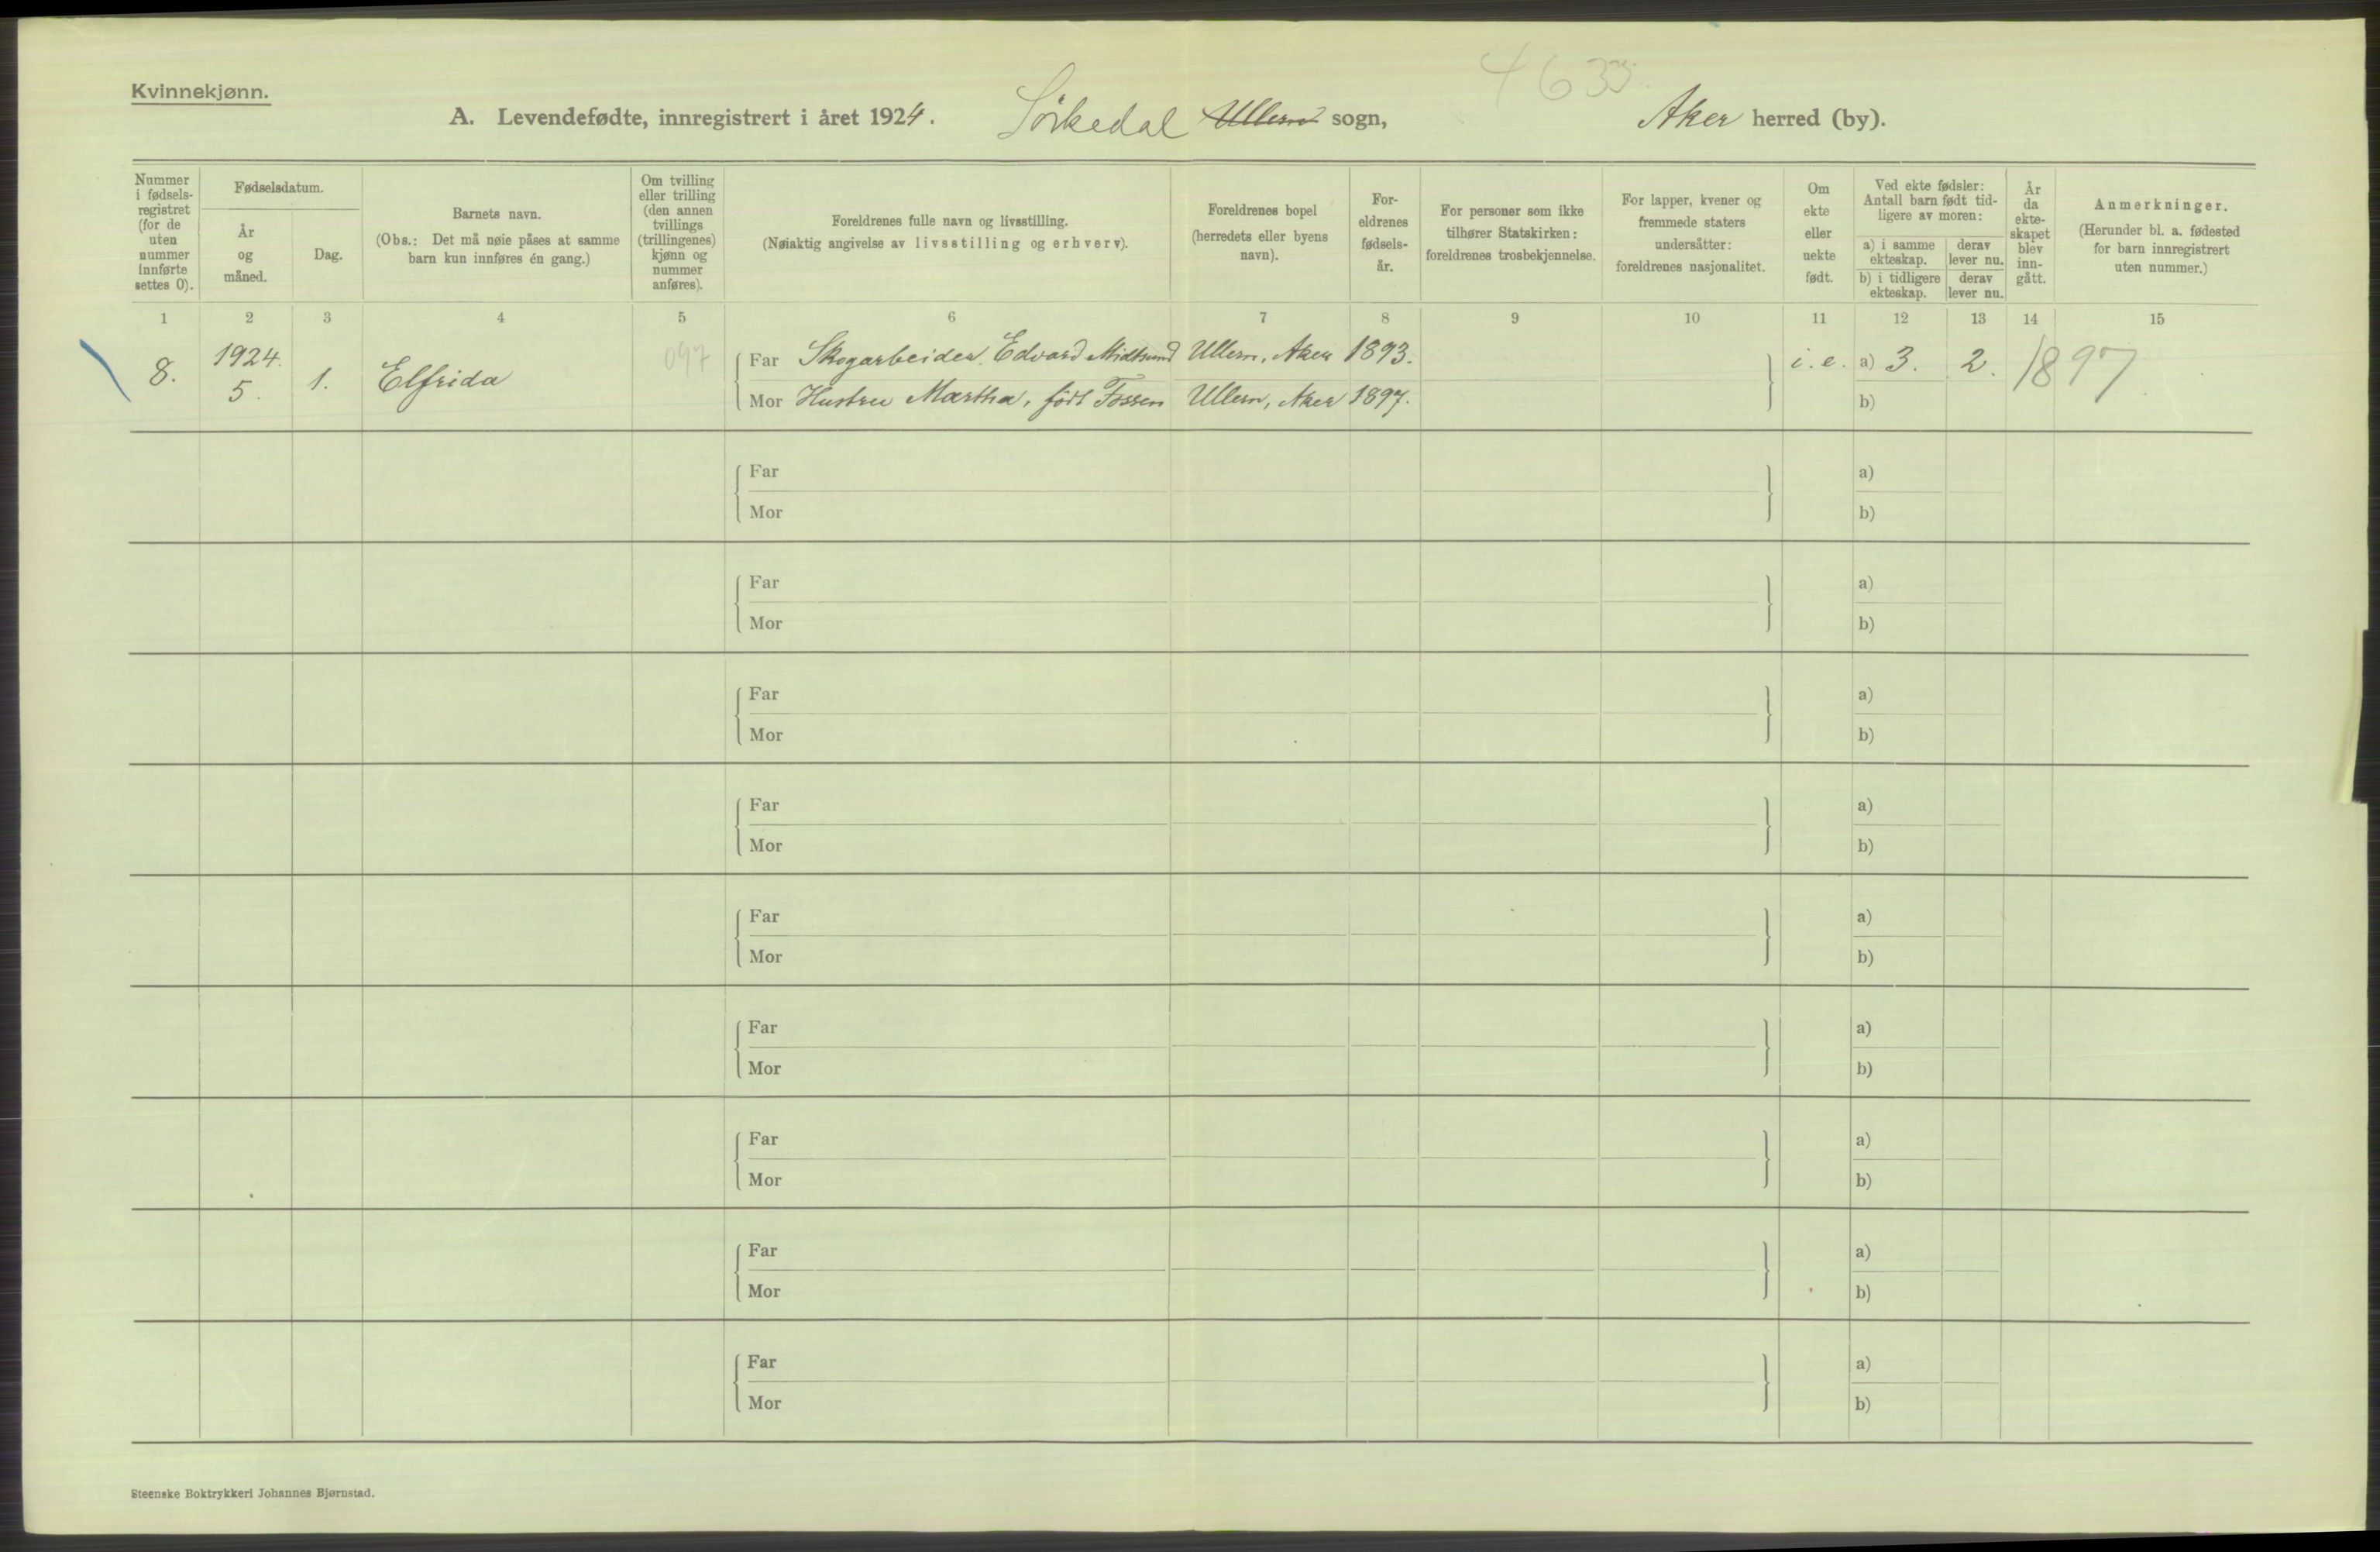 4633
Kvinnekjønn.
A. Levendefødte, innregistrert i året 1924. Sörkedal Ullern sogn, Aker herred (by).
Nummer i fødsels-registret (for de uten nummer innførte settes 0).
Fødselsdatum.
År og måned.
Dag.
Barnets navn.
(Obs.: Det må nøie påses at samme barn kun innføres én gang.)
Om tvilling eller trilling (den annen tvillings (trillingenes) kjønn og nummer anføres).
Foreldrenes fulle navn og livsstilling.
(Nøiaktig angivelse av livsstilling og erhverv).
Foreldrenes bopel (herredets eller byens navn).
For-eldrenes fødsels-år.
For personer som ikke tilhører Statskirken: foreldrenes trosbekjennelse.
For lapper, kvener og fremmede staters undersåtter: foreldrenes nasjonalitet.
Om ekte eller uekte født.
Ved ekte fødsler: Antall barn født tid-ligere av moren:
a) i samme ekteskap.
derav lever nu.
b) i tidligere ekteskap.
derav lever nu.
År da ekte-skapet blev inn-gått.
Anmerkninger.
(Herunder bl. a. fødested for barn innregistrert uten nummer.)
1 2 3 4 5 6 7 8 9 10 11 12 13 14 15
8. 1924. 5. 1. Elfrida 097
Far Skogarbeider Edvard Midtsund Ullern, Aker 1893. i. e. a) 3. 2. 1897
Mor Hustru Martha, født Fossen Ullern, Aker 1897. b)
Far a)
Mor b)
Far a)
Mor b)
Far a)
Mor b)
Far a)
Mor b)
Far a)
Mor b)
Far a)
Mor b)
Far a)
Mor b)
Far a)
Mor b)
Far a)
Mor b)
Steenske Boktrykkeri Johannes Bjørnstad.